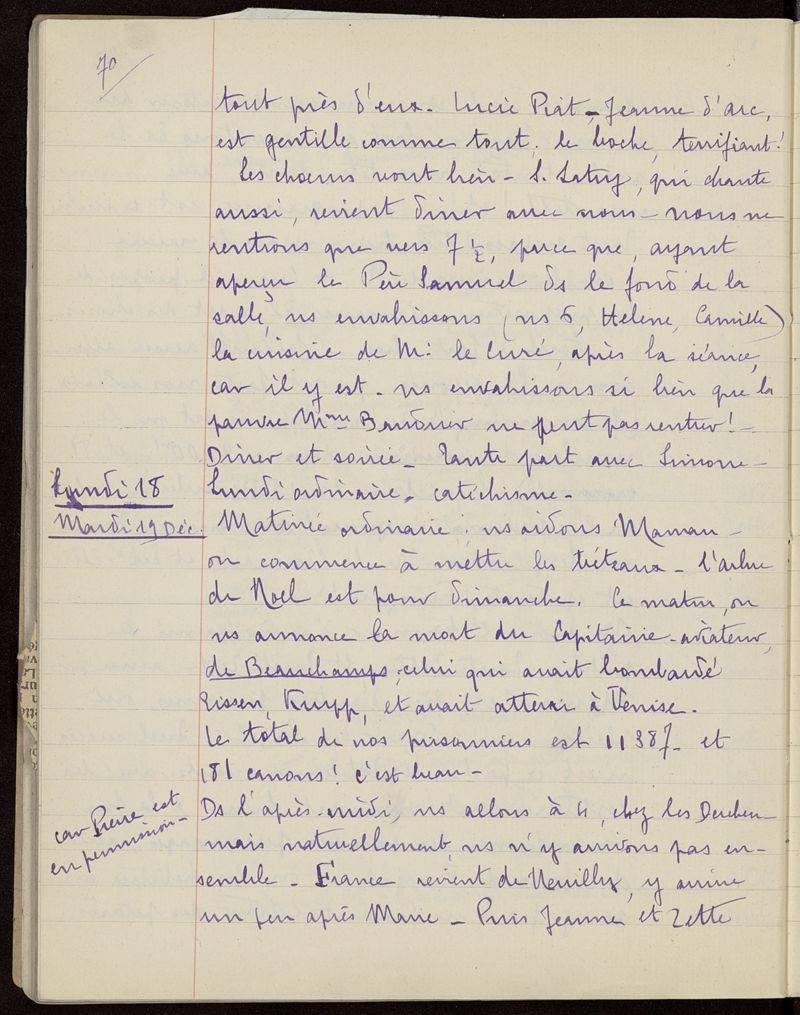 70
tout près d'eux - Lucie Piat - Jeanne d'Arc,
est gentille comme tout ; le boche, terrifiant !
Les choeurs vont bien - S. Latuy, qui chante
aussi, revient dîner avec nous - nous ne
rentrons que vers 7 ½, parce que, ayant
aperçu le Père Samuel ds le fond de la
salle, ns envahissons (ns 6, Hélène, Camille)
la cuisine de M: le Curé, après la séance,
car il y est - ns envahissons si bien que la
pauvre Mme Baudrier ne peut pas rentrer ! -
Dîner et soirée - Tante part avec Simone -
Lundi 18 Lundi ordinaire - catéchisme -
Mardi 19 Déc. Matinée ordinaire ; ns aidons Maman -
on commence à mettre les tréteaux - l'arbre
de Noël est pour dimanche. Ce matin, on
ns annonce la mort du Capitaine-aviateur,
de Beauchamps, celui qui avait bombardé
Essen, Krupp, et avait atterri à Venise.
Le total de nos prisonniers est 11387 - et
181 canons ! c'est beau -
Ds l'après-midi, ns allons à 4, chez les
car Pierre est
en permission -
mais naturellement, ns n'y arrivons pas en-
semble - France revient de Neuilly, y arrive
un peu après Marie - Puis Jeanne et Zette